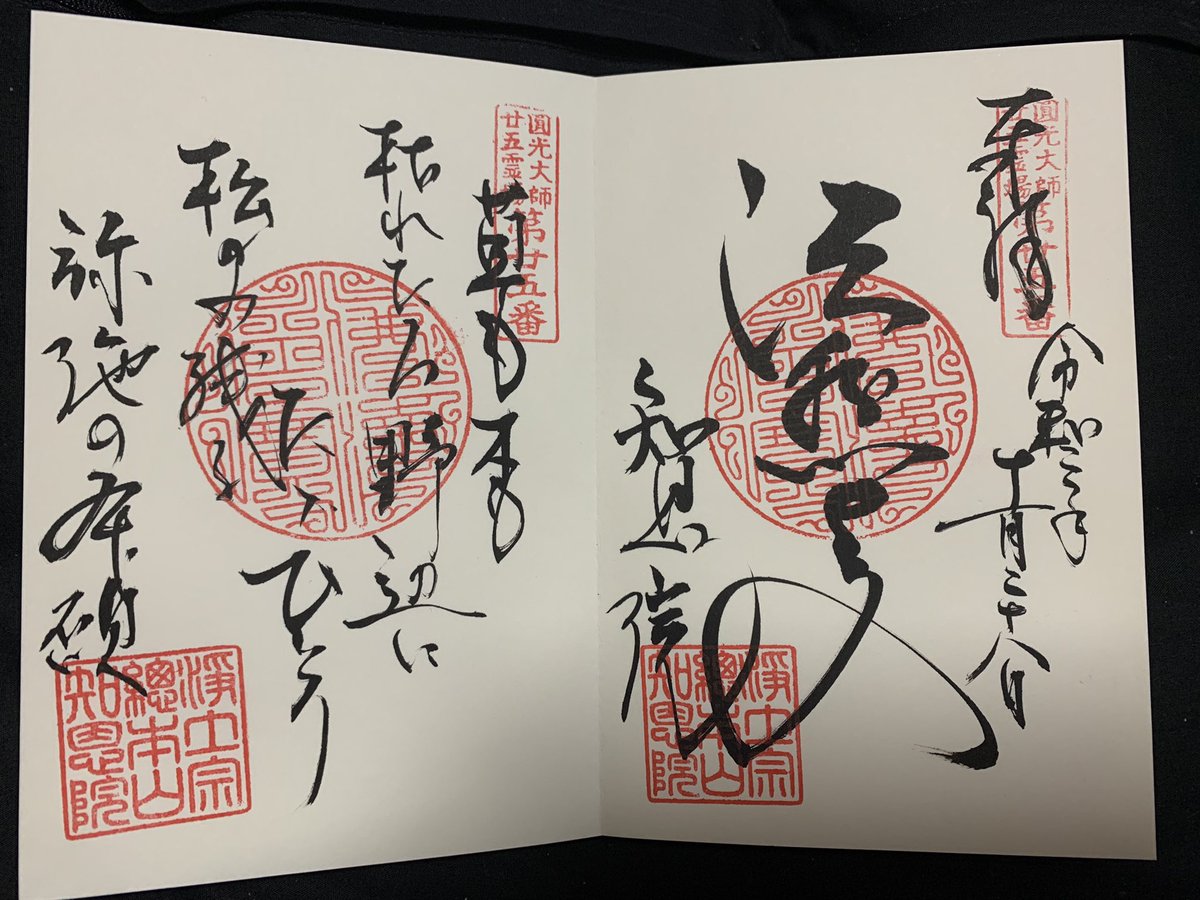 圓光大師
廿五霊場第廿五番
奉拝
令和二年
十一月二十八日
法然上人
知恩院
淨土宗
總本山
知恩院
圓光大師
廿五霊場第廿五番
草も木も
枯れたる野辺に
たゞひとり
松のみ残る
弥陀の本願
淨土宗
總本山
知恩院